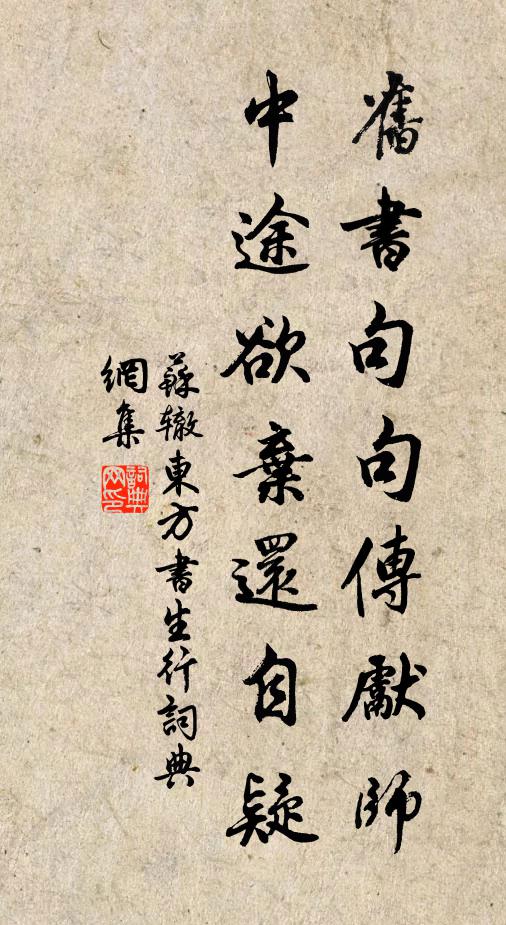 舊書句句傳獻師
中途欲棄還自疑
蘇轍東方書生行詞典
網集
詞典
网印